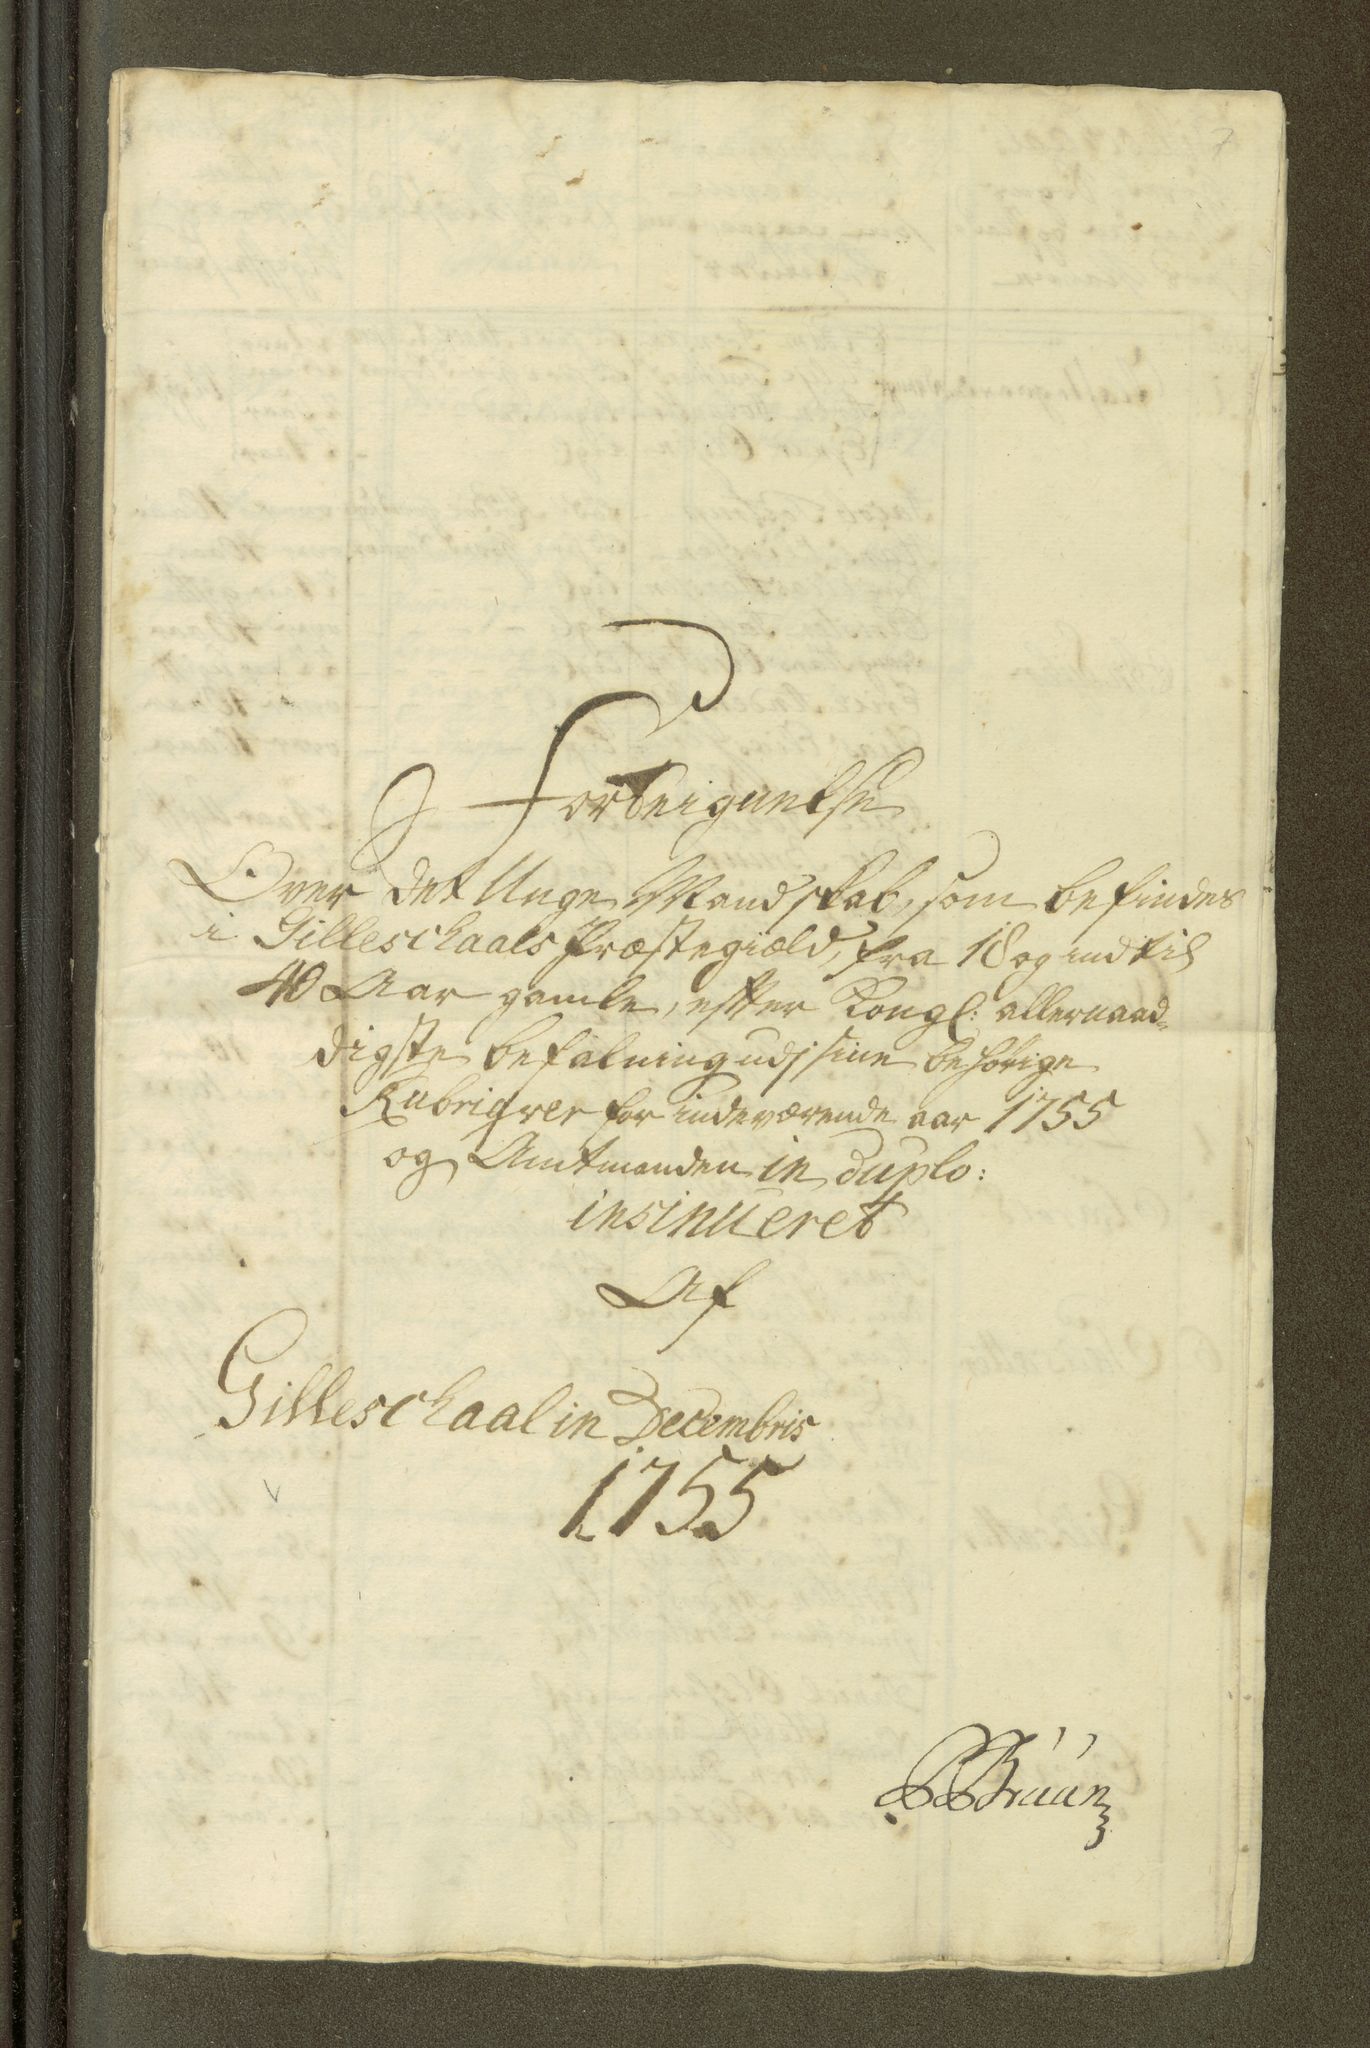 7
Forteignelse
Over det Unge Mandskab, som befindes
i Gilleschaals Præstegiæld, fra 18 og indtil
40 Aar gamle, efter Kongl: allernaad=
digste befalning udj sine behörige
Rubriqver for indeværende aar 1755
og Amtmanden in duplo:
insinueret
Af
Gilleschaal in Decembris
1755
Brúún